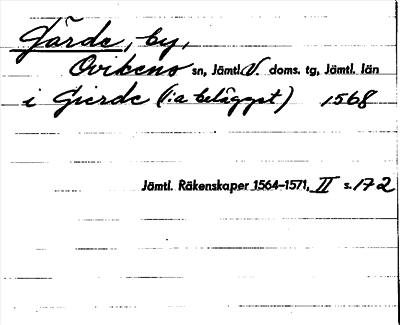 Gärde, by,
Ovikens sn, Jämtl. V. doms. tg, Jämtl. län
i Gierde (1:a belägget) 1568
Jämtl. Räkenskaper 1564–1571, II s. 172